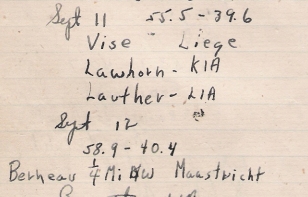 Sept 11 55.5 - 39.6
Vise Liege
Lawhorn - KIA
Lauther - LIA
Sept 12
58.9 - 40.4
Berneau 1/4 Mi NW Maastricht